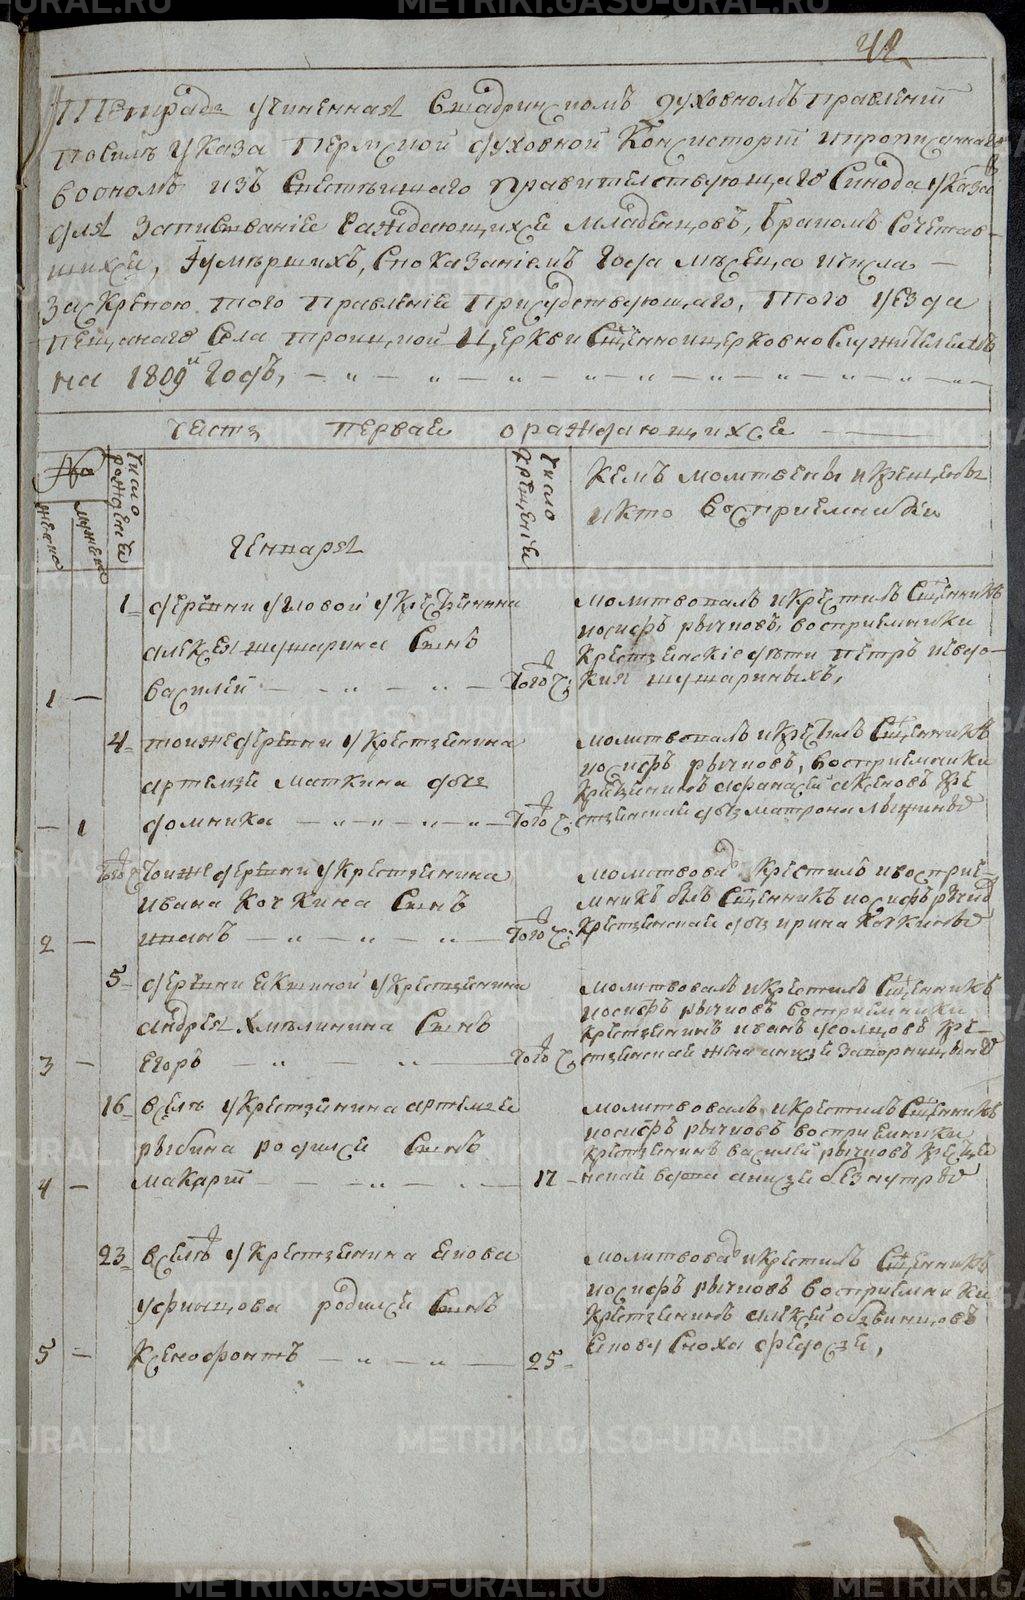 42
Тетрадь учиненная вшадринскомъ духовномъ правленiи
посилѣ указа Пермской духовной Консисторiи ипрописаннаго
воономъ изъ Святѣйшаго правительствующаго Синода указа
для записыванiе раждающихсе младенцовъ, бракомъ сочетав-
шихсе, Iумѣршихъ, споказанiемъ года месеца ичисла —
заскрепою того правленiе присудствующаго, того уезда
пещанаго села троицкой Церкви Сщенноицерковнослужителямъ
на 1809й годъ,
часть перваие ораждающихсе
№
мужеска
женска
число рожденiе
Генваря
число крещенiе
кемъ молитвены икрещены
икто восприемники
1 деревни угловой укрестьянина
алексея шушарина сынъ
1 — василей — того ч:
молитвовалъ икрестилъ Сщенникъ
иосифъ рычковъ, восприемники
крестьянскiе дѣти петръ иевдо-
кия шушариныхъ,
4 тоижедеревни укрестьянина
артемье маткина дочь
— 1 домника — того ч:
молитвовалъ икрестилъ Сщенникъ
иосифъ рычковъ, восприемники
афанасей
матрона
того ч: тоижедеревни укрестьянина
ивана Кочкина сынъ
2 — иванъ — того ч:
молитвова икрестилъ ивосприе-
мникъ былъ Сщенникъ иосифъ рычков
крестьянская дочь ирина Кочкиныхъ
5 деревни екшиной укрестьянина
андрея Хмелинина сынъ
3 — Егоръ — того ч:
молитвовалъ икрестилъ Сщенникъ
иосифъ рычковъ восприемники
крестьянинъ иванъ усолцовъ кре-
стьянская жена
16 вселе укрестьянина артемье
рыбина родилсе сынъ
4 — макарiй — 17
молитвовалъ икрестилъ Сщенникъ
иосифъ рычковъ восприемники
крестьянинъ василей рычковъ
23 вселѣ укрестьянина Iякова
уфинцова родилсе сынъ
5 — Ксенофонтъ — 25
молитвова икрестилъ Сщенникъ
иосифъ рычковъ восприемники
крестьянинъ алексей обвинцовъ
сноха федосье,
METRIKI.GASO-URAL.RU